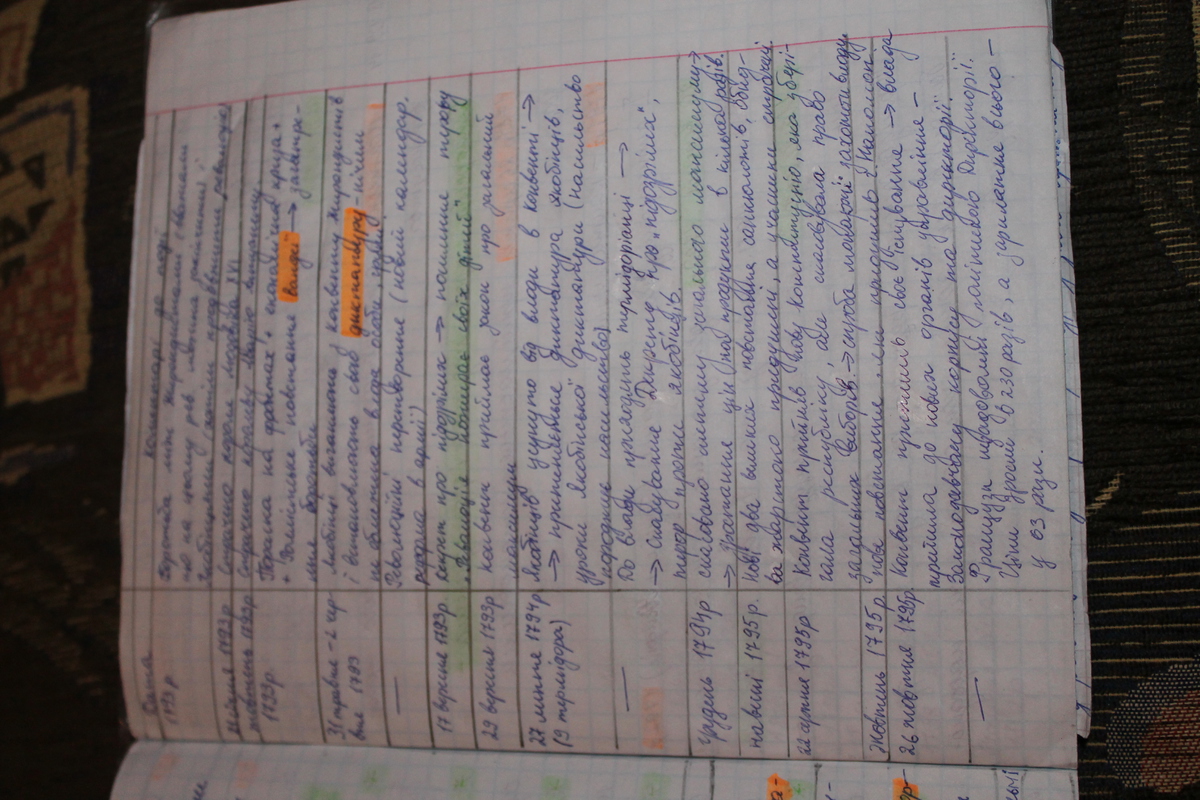 Дата Коментарі до події
1793р Боротьба між Жирондистами (вважали
що на цьому рев. можна закінчити) і
Якобінцями (хотіли продовження революції)
Страчено короля Людовіка XVI
жовтень 1793р. Страчено королеву Марію Антуанету
1793р Поразка на фронтах + економічна криза +
+ селянське повстання Вандеї →
31 травня - 2 чер- якобінці вигнали з конвенту жирондистів
вня 1793 і встановлюють свою диктатуру - нічим
не обмежена влада особи, групи
— Революційні перетворення (новий календар,
реформа в армії)
17 вересня 1793р. декрет про підозрілих → посилення терору
"Революція пожирає своїх дітей"
29 вересня 1793р конвент приймає закон про загальний
максимум
27 липня 1794р Якобінців усунуто від влади в конвенті →
(9 термідора) → припинення диктатура якобінців,
уроки якобінської диктатури (насильство
породжує насильство)
— До влади приходять термідоріанці →
→ скасування Декрету про "підозрілих",
терор проти якобінців.
грудень 1794р скасовано політику загального максимуму →
→ Зростання цін (на продукти в кілька разів)
навесні 1795р. Нові два великих повстання санкюлотів, обид-
ва жорстоко придушені, а учасники страчені
22 серпня 1795р Конвент прийняв нову Конституцію, яка збері-
гала республіку, але скасовувала право
загальних виборів → спроба
Жовтень 1795р. нове повстання придушив Наполеон
26 жовтня 1795р. Конвент припинив своє існування → влада
перейшла до нових органів управління -
Законодавчому корпусу та директорії
— Французи невдоволені політикою Директорії:
Ціни зросли в 230 разів, а зарплатня всього -
у 63 рази.